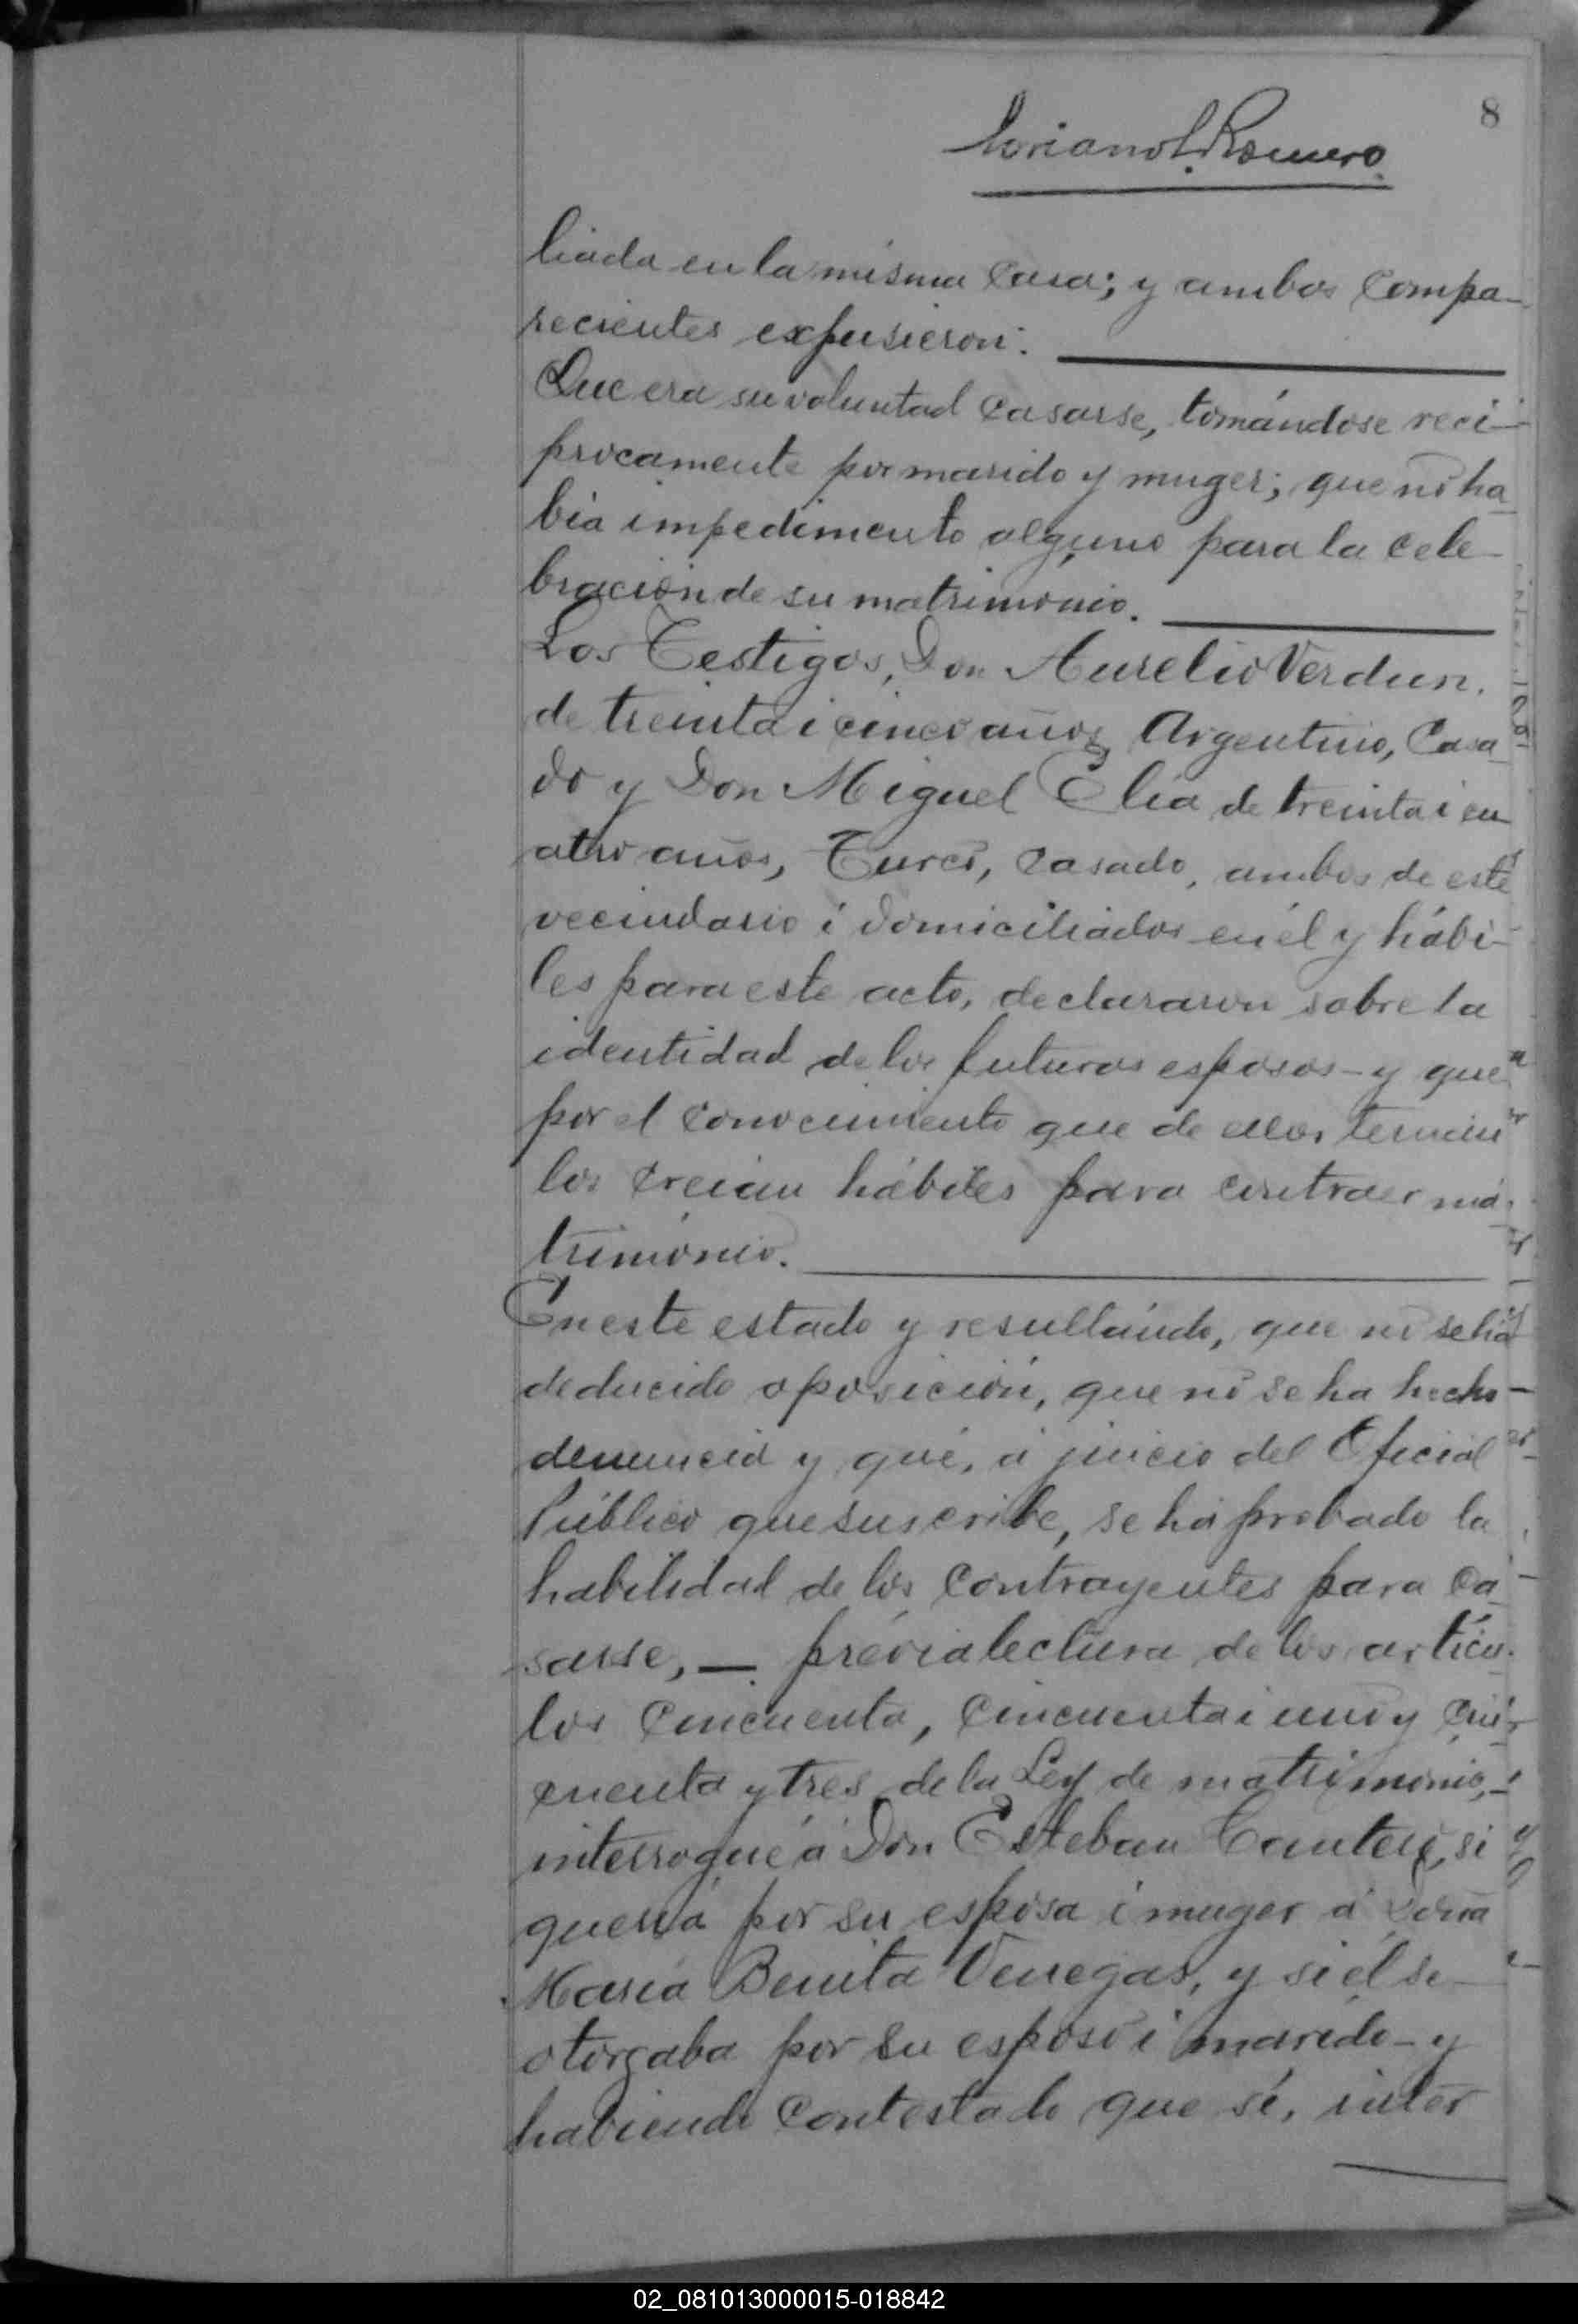 8
L. Romero
liada en la misma casa; y ambos compa-
recientes expusieron:
Que era su voluntad casarse, tomándose reci-
procamente por marido y muger; que no ha
bia impedimento alguno para la cele-
bración de su matrimonio.
Los Testigos, Don Aurelio Verdun,
de treinta i cinco años, Argentino, Casa
do y Don Miguel Elia de treinta i cu
atro años, Turco, Casado, ambos de este
vecindario i domiciliados en él y hábi-
les para este acto, declararon sobre la
identidad de los futuros esposos - y que
por el conocimiento que de ellos tenian
los creian hábiles para contraer ma
trimonio.
En este estado y resultando, que no se ha
deducido oposición, que no se ha hecho
denuncia y que, á juicio del Oficial
Público que suscribe, se ha probado la
habilidad de los contrayentes para ca
sarse, - previa lectura de los artícu-
los cincuenta, cincuenta i uno y cin
cuenta y tres de la Ley de matrimonio,
interrogué á Don Esteban Cantero, si
queria por su esposa i muger á Doña
María Benita Venegas, y si él se
otorgaba por su esposo i marido - y
habiendo contestado que sí, inter
02_081013000015-018842